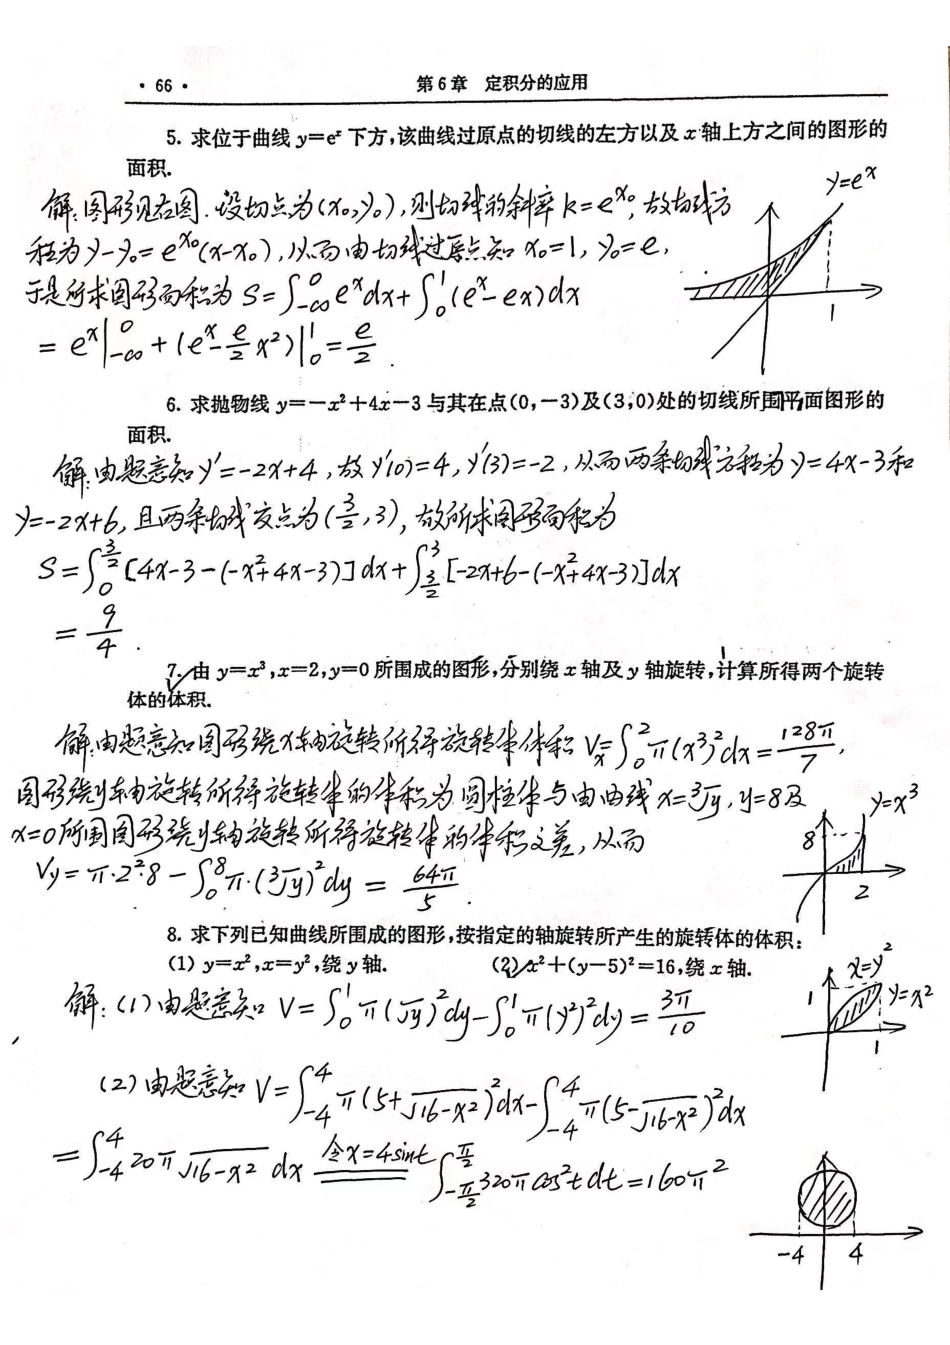 · 66 ·
第6章 定积分的应用
5. 求位于曲线 y=eˣ 下方,该曲线过原点的切线的左方以及 x 轴上方之间的图形的
面积.
解:图形见右图.设切点为(x₀,y₀),则切线的斜率k=e^{x₀},故切线方
程为y-y₀=e^{x₀}(x-x₀),从而由切线过原点知 x₀=1, y₀=e,
于是所求图形面积为 S=∫_{-∞}^{0} eˣdx+∫_{0}^{1}(eˣ-ex)dx
= eˣ|_{-∞}^{0}+(eˣ-\frac{e}{2}x²)|_{0}^{1}=\frac{e}{2}.
y=eˣ
1
6. 求抛物线 y=-x²+4x-3 与其在点(0,-3)及(3,0)处的切线所围平面图形的
面积.
解:由题意知 y'=-2x+4,故 y'(0)=4, y'(3)=-2,从而两条切线方程为 y=4x-3和
y=-2x+6,且两条切线交点为(\frac{3}{2},3),故所求图形面积为
S=∫_{0}^{\frac{3}{2}}[4x-3-(-x²+4x-3)]dx+∫_{\frac{3}{2}}^{3}[-2x+6-(-x²+4x-3)]dx
=\frac{9}{4}.
7. 由 y=x³,x=2,y=0 所围成的图形,分别绕 x 轴及 y 轴旋转,计算所得两个旋转
体的体积.
解:由题意知图形绕x轴旋转所得旋转体体积 Vₓ=∫_{0}^{2}π(x³)²dx=\frac{128π}{7},
图形绕y轴旋转所得旋转体的体积为圆柱体与由曲线 x=∛y, y=8及
x=0所围图形绕y轴旋转所得旋转体的体积之差,从而
V_y=π·2²·8-∫_{0}^{8}π·(∛y)²dy=\frac{64π}{5}.
y=x³
8
2
8. 求下列已知曲线所围成的图形,按指定的轴旋转所产生的旋转体的体积:
(1) y=x²,x=y²,绕 y 轴.
(2) x²+(y-5)²=16,绕 x 轴.
解:(1)由题意知 V=∫_{0}^{1}π(√y)²dy-∫_{0}^{1}π(y²)²dy=\frac{3π}{10}
x=y²
y=x²
1
1
(2)由题意知 V=∫_{-4}^{4}π(5+√(16-x²))²dx-∫_{-4}^{4}π(5-√(16-x²))²dx
=∫_{-4}^{4}20π√(16-x²)dx 令x=4sint ∫_{-\frac{π}{2}}^{\frac{π}{2}}320πcos²tdt=160π²
-4
4